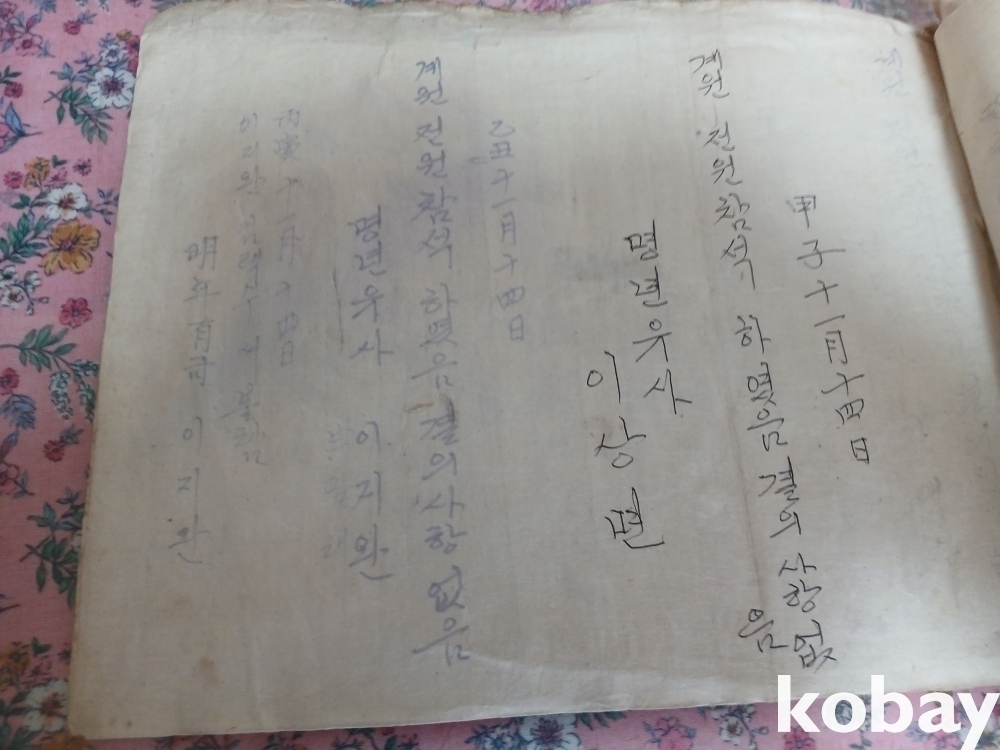 甲子十一月十四日
계원 전원 참석 하였음 결의 사항 없음
명년유사
이상면
乙丑十一月十四日
계원 전원참석 하였음 결의사항 없음
명년유사 이지완
十一月十四日
불참
明年有司 이지완
kobay